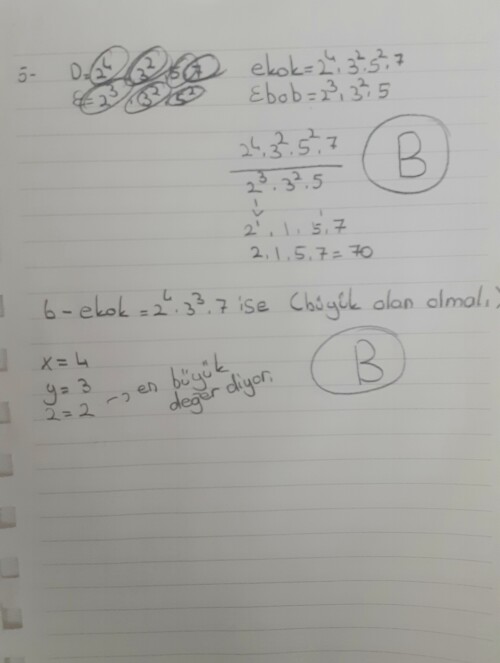 5- D=2⁴.3².5.7 ekok=2⁴.3².5².7
E=2³.3².5² Ebob=2³.3².5
2⁴.3².5².7
2³.3².5
B
2¹.1.5¹.7
2.1.5.7=70
6-ekok=2⁴.3³.7 ise (büyük olan olmalı)
x=4
y=3
z=2 -> en büyük değer diyor.
B